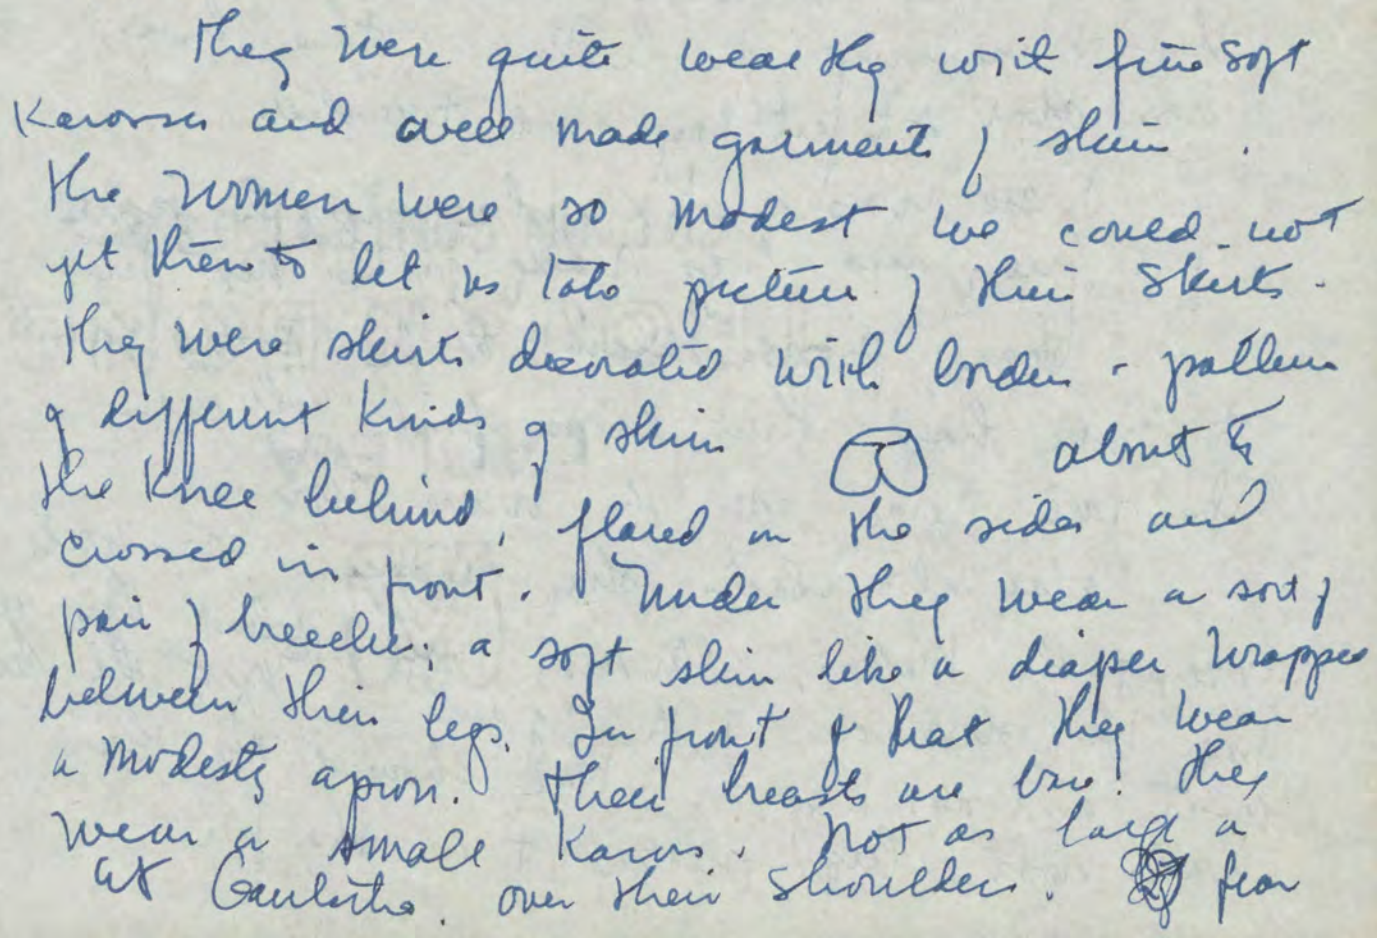 They were quite wealthy with fine soft
Karosses and well made garments of skin.
The women were so modest we could not
get them to let us take picture of their skirts.
They were skirts decorated with border - pattern
of different kinds of skin about to
the knee behind, flared on the sides and
crossed in front. Under they wear a sort of
pair of breeches; a soft skin like a diaper wrapped
between their legs. In front of that they wear
a modesty apron. Their breasts are bare. They
wear a small Karos. Not as large a
at over their shoulders. few